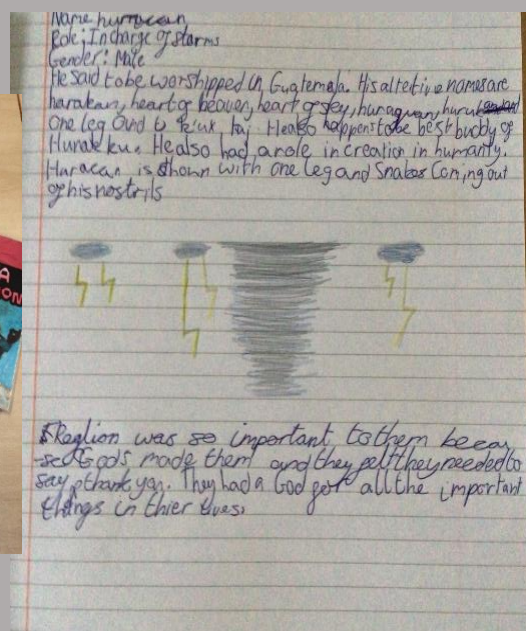 Name hurracan
Role; Incharge of storms
Gender: Male
He said to be worshipped in Guatemala. His altertive names are
harakan, heart of heaven, heart of sky, huraquan,
one leg and. He also happens to be best buddy of
He also had a role in creation in humanity.
Huracan is shown with one leg and Snakes Coming out
of his nostrils
Reglion was so important to them becau
-se Gods made them and they felt they needed to
say thank you. They had a God for all the important
things in thier lives.
A
ION